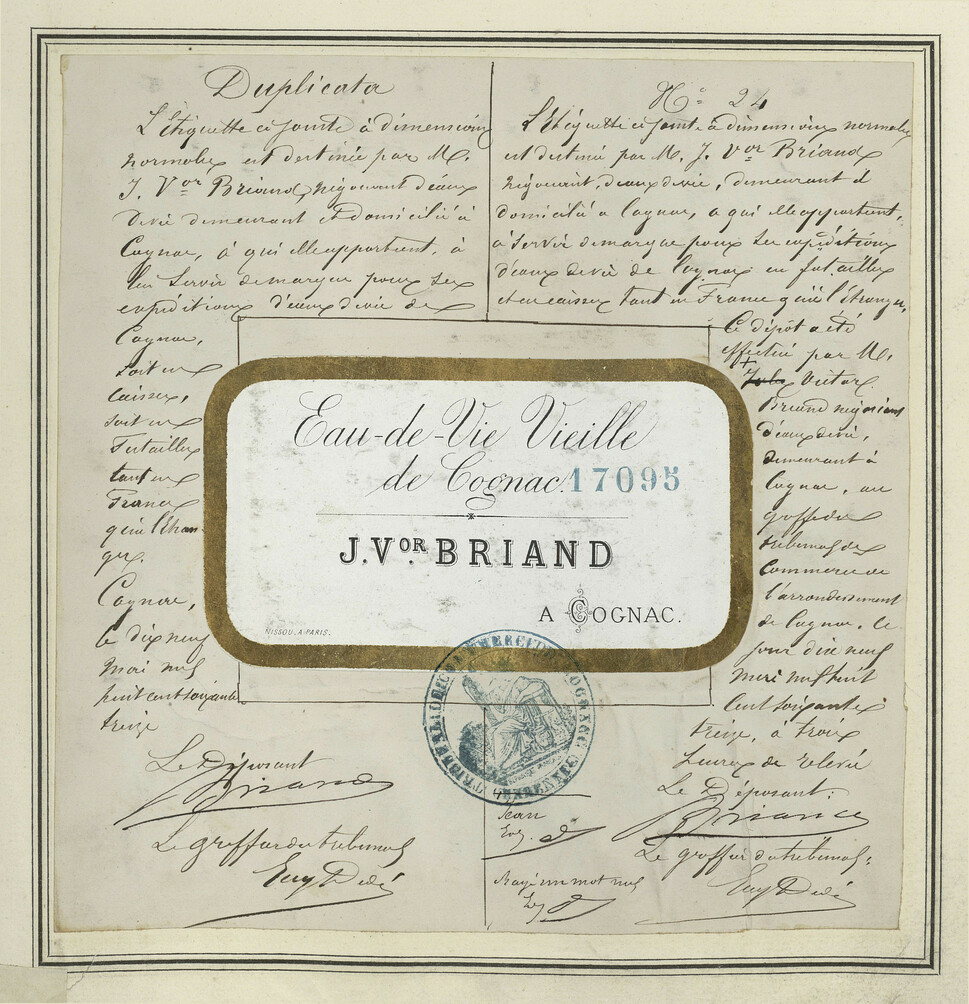 Duplicata
L'Etiquette ci jointe à dimensions
normales est destinée par M.
J. Vor Briand, négociant d'eaux
devie demeurant et domicilié à
Cognac, à qui elle appartient, à
lui servir de marque pour ses
expéditions d'eaux devie de
Cognac,
soit en
caisses,
soit en
futailles
tant en
France
qu'à l'Etran-
ger.
Cognac,
le dix neuf
Mai mil
huit cent soixante
treize
Le Déposant
Briand
Le greffier du tribunal
Eug Dedé
No 24
L'Etiquette ci jointe à dimensions normales
est destinée par M. J. Vor Briand
négociant, d'eaux devie, demeurant &
domicilié à Cognac, à qui elle appartient,
à servir de marque pour ses expéditions
d'eaux devie de Cognac en futailles
et en caisses tant en France qu'à l'étranger,
Ce dépôt a été
effectué par M.
+ Jules Victor
Briand négociant
d'eaux devie,
demeurant à
Cognac, au
greffe du
tribunal de
Commerce de
l'arrondissement
de Cognac, ce
jour dix neuf
Mai mil huit
cent soixante
treize, à trois
heures de relevée
Le Déposant:
Briand
Le greffier du tribunal:
Eug Dedé
Eau-de-Vie Vieille
de Cognac. 17095
J. VOR. BRIAND
A COGNAC.
NISSOU, A PARIS.
TRIBUNAL DE COGNAC
Rayé un mot nul